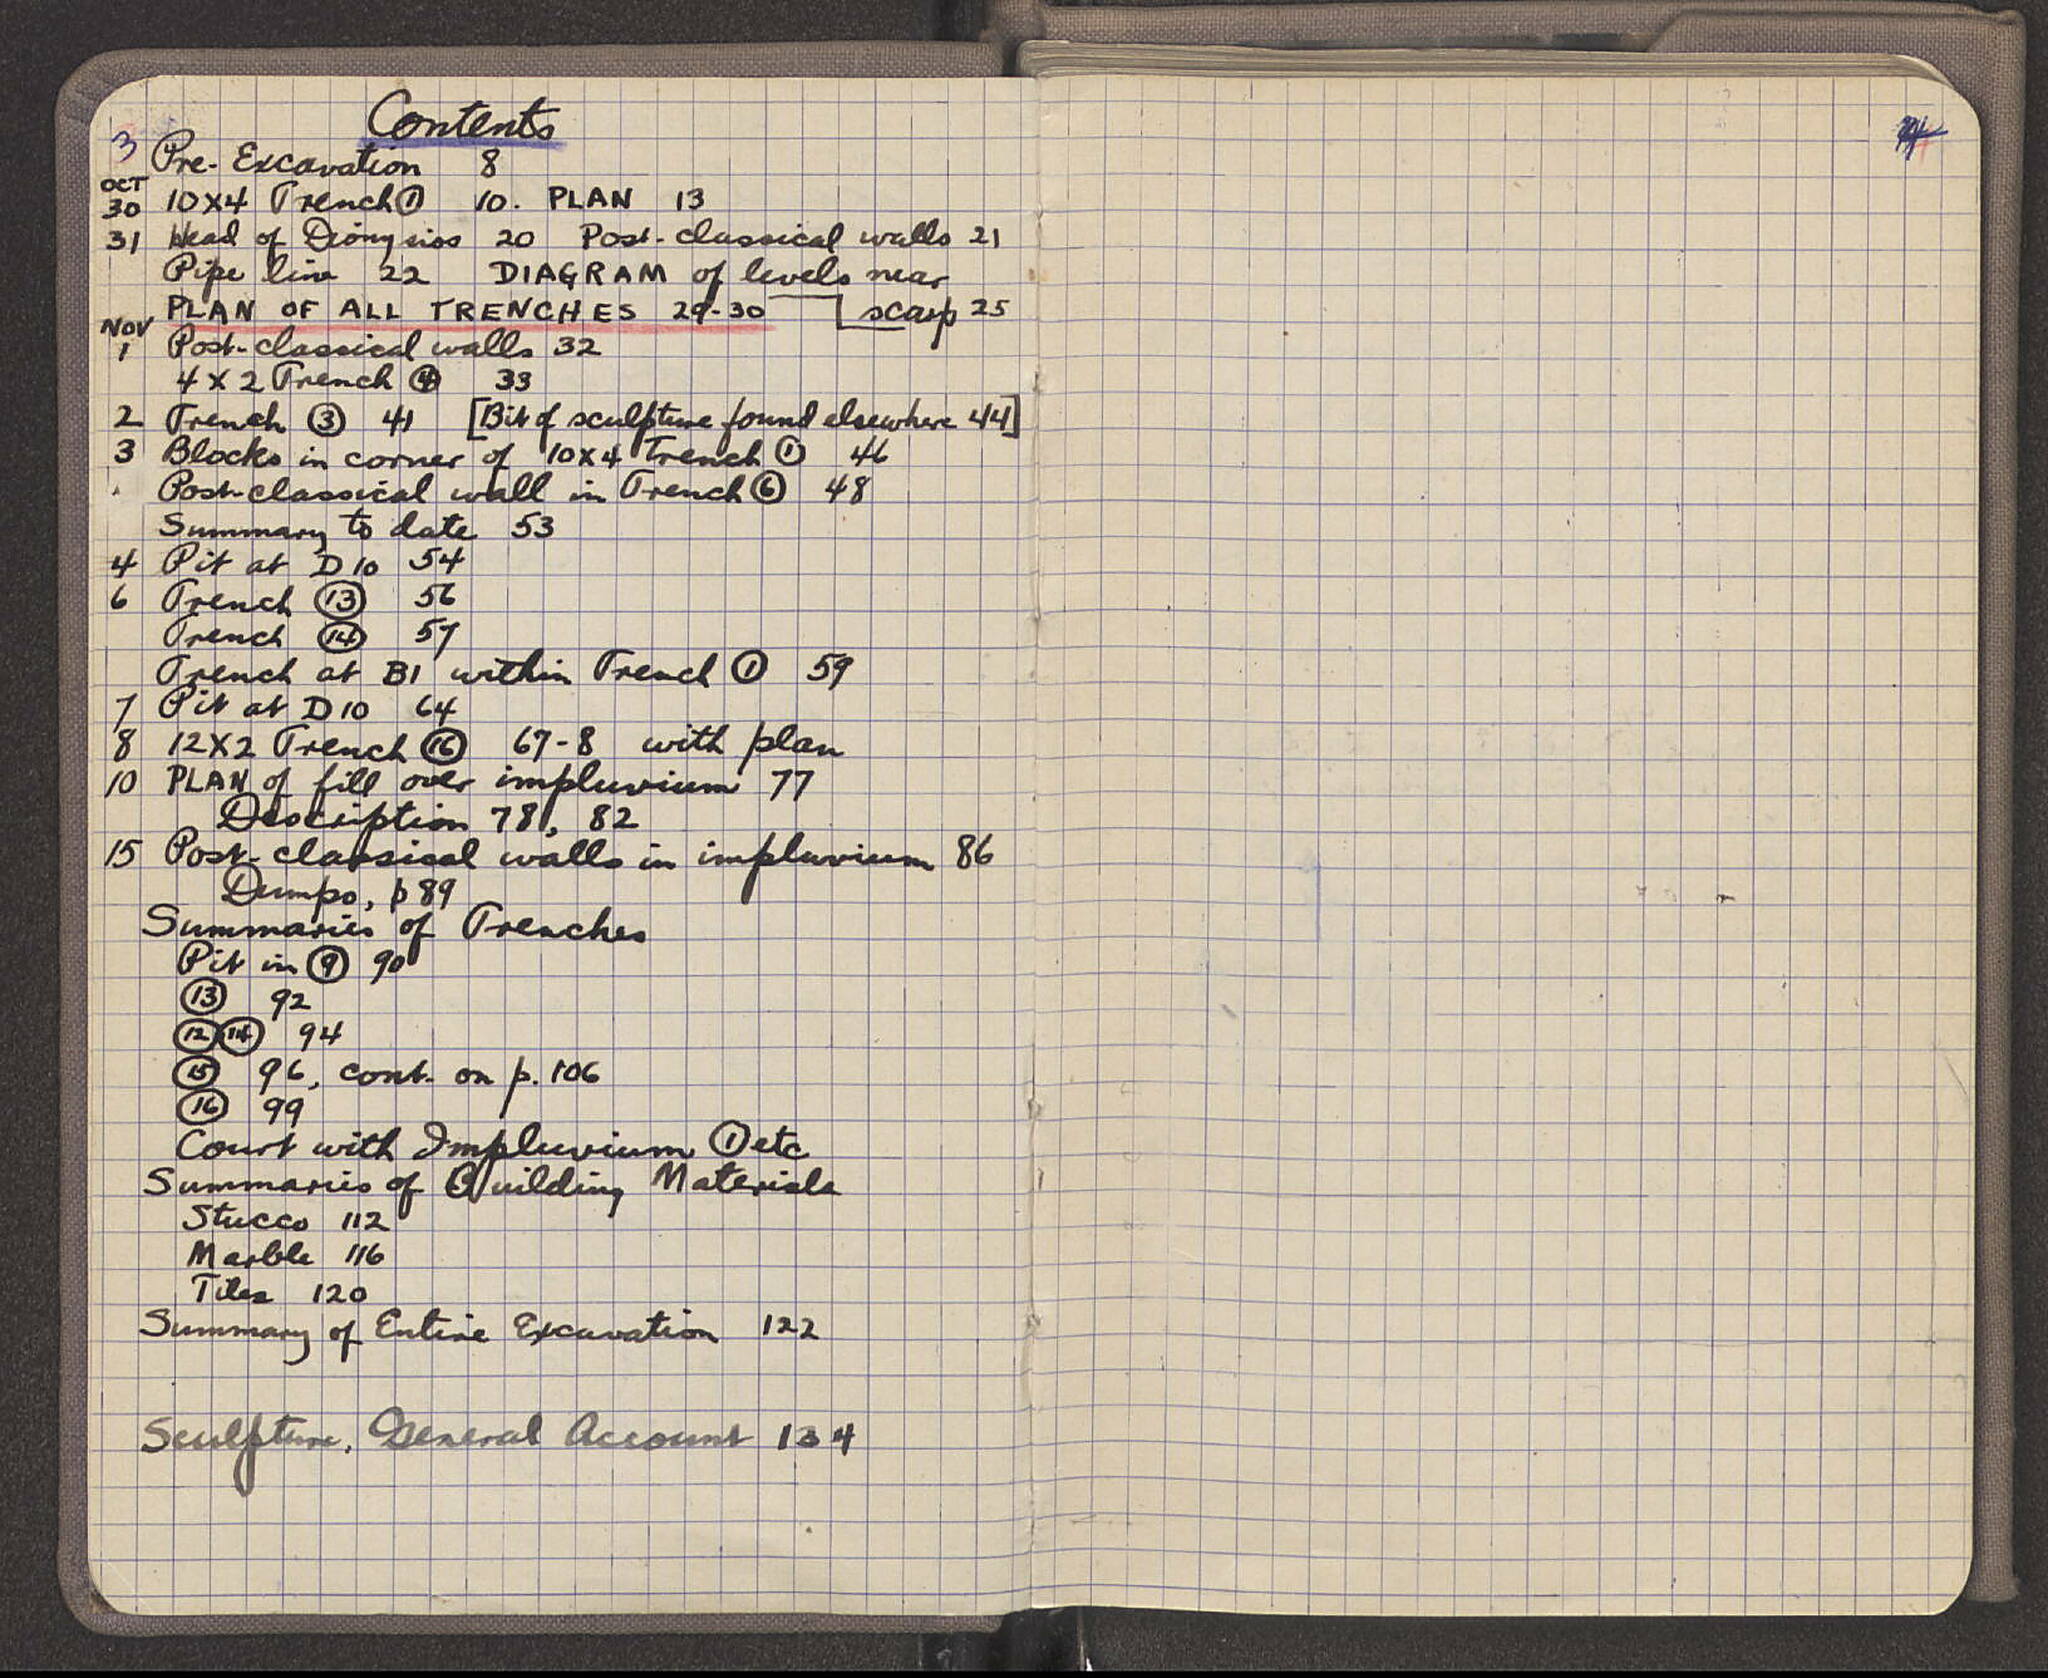 Contents
3
Pre-Excavation 8
OCT
30 10x4 Trench ① 10. PLAN 13
31 Head of Dionysios 20 Post-classical walls 21
Pipe line 22 DIAGRAM of levels near
PLAN OF ALL TRENCHES 29-30 scarp 25
NOV
1 Post-classical walls 32
4x2 Trench ④ 33
2 Trench ③ 41 [Bit of sculpture found elsewhere 44]
3 Blocks in corner of 10x4 Trench ① 46
Post-classical wall in Trench ⑥ 48
Summary to date 53
4 Pit at D10 54
6 Trench ⑬ 56
Trench ⑭ 57
Trench at B1 within Trench ① 59
7 Pit at D10 64
8 12x2 Trench ⑯ 67-8 with plan
10 PLAN of fill over impluvium 77
Description 78, 82
15 Post-classical walls in impluvium 86
Dumps, p 89
Summaries of Trenches
Pit in ⑨ 90
⑬ 92
⑫ ⑭ 94
⑮ 96, cont. on p. 106
⑯ 99
Court with Impluvium ① etc
Summaries of Building Materials
Stucco 112
Marble 116
Tiles 120
Summary of Entire Excavation 122
Sculpture, General Account 134